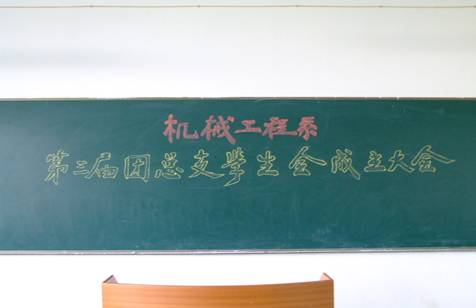 机械工程系
第三届团总支學生会成立大会